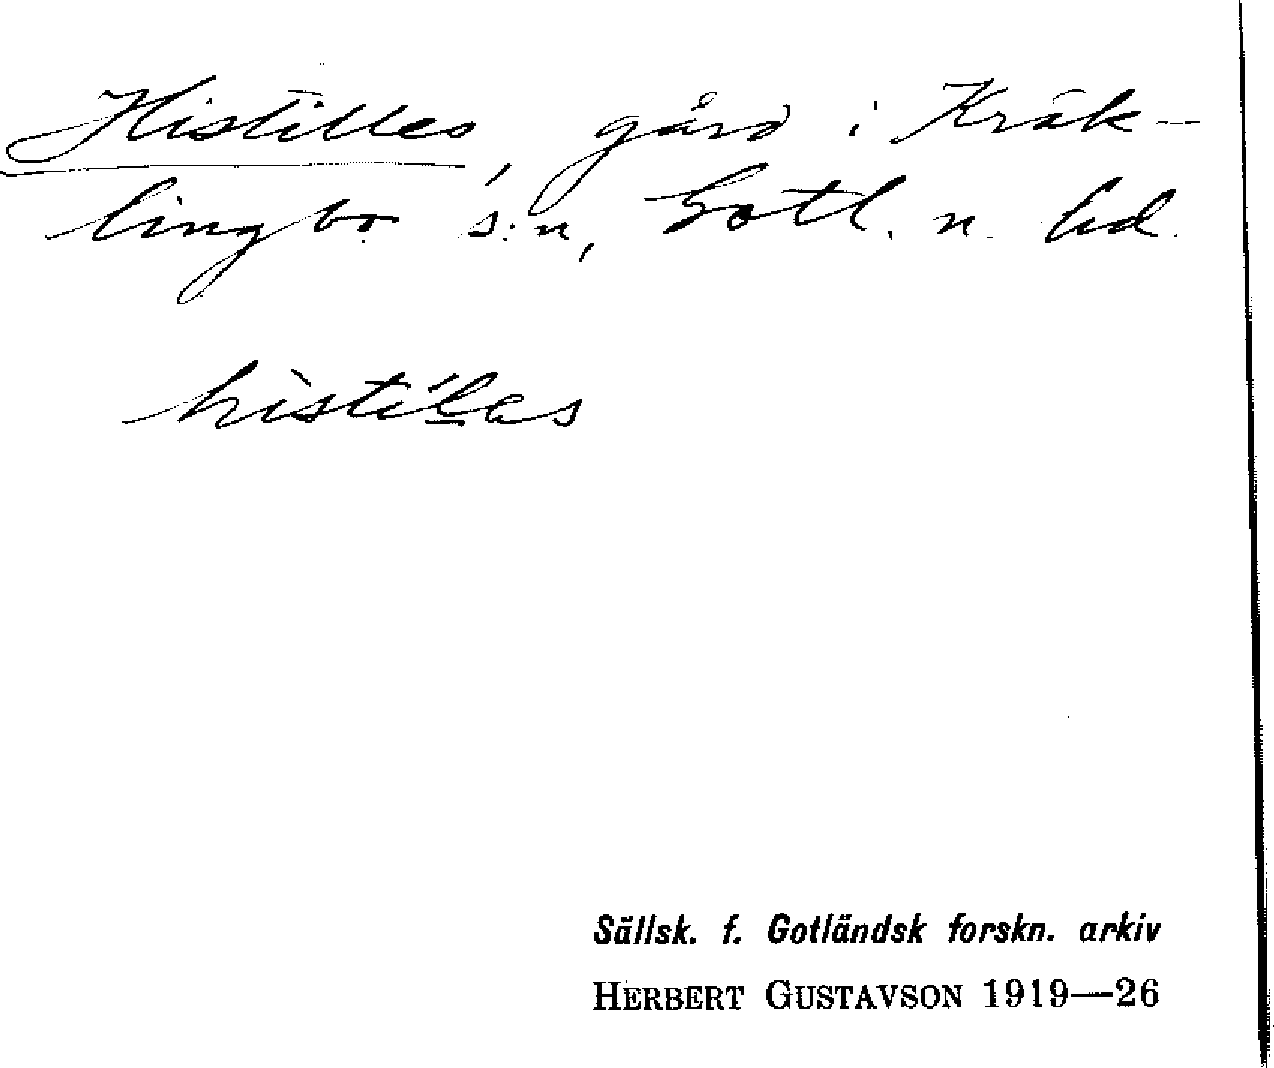 Histilles, gård i Kräk-
lingbo s:n, Gotl. n. hd.
hìstí́l̲as
Sällsk. f. Gotländsk forskn. arkiv
HERBERT GUSTAVSON 1919—26